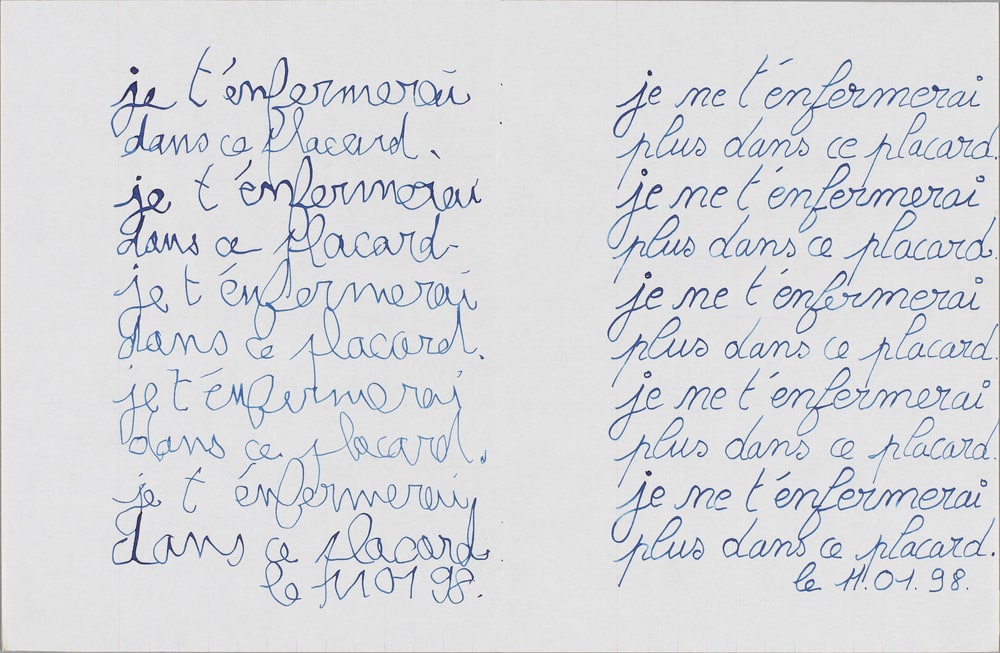 je t'enfermerai
dans ce placard.
je t'enfermerai
dans ce placard
je t'enfermerai
dans ce placard.
je t'enfermerai
dans ce placard.
je t'enfermerai
dans ce placard.
le 11 01 98.
je ne t'enfermerai
plus dans ce placard.
je ne t'enfermerai
plus dans ce placard.
je ne t'enfermerai
plus dans ce placard.
je ne t'enfermerai
plus dans ce placard.
je ne t'enfermerai
plus dans ce placard.
le 11.01.98.